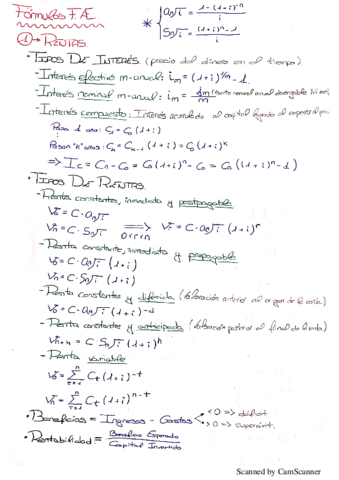 Fórmulas F.A.E.
* { an¬i = 1-(1+i)^-n / i
Sn¬i = (1+i)^n - 1 / i
1 → RENTAS.
• TIPOS DE INTERÉS (precio del dinero en el tiempo).
- Interés efectivo m-anual: im = (1+i)^1/m - 1
- Interés nominal m-anual: im = Jm/m (tanto nominal
- Interés compuesto: Interés acumulado al capital
Para 1 año: C1 = C0 (1+i)
Para "n" años: Cn = Cn-1 (1+i) = C0 (1+i)^n
⇒ Ic = Cn - C0 = C0 (1+i)^n - C0 = C0 ((1+i)^n - 1)
• TIPOS DE RENTAS.
- Renta constantes, inmediata y postpagable
V0 = C · an¬i
Vn = C · Sn¬i ⇒ 0<r<n Vr = C · an¬i (1+i)^r
- Renta constante, inmediata y prepagable
V0 = C · an¬i (1+i)
Vn = C · Sn¬i (1+i)
- Renta constantes y diferida (Valoración anterior al origen de la renta)
V0 = C · an¬i (1+i)^-d
- Renta constantes y anticipada (Valoración posterior al final de la renta)
Vn+h = C Sn¬i (1+i)^h
- Renta variable
V0 = n Σ t=1 Ct (1+i)^-t
Vn = n Σ t=1 Ct (1+i)^n-t
• Beneficios = Ingresos - Gastos < 0 ⇒ déficit
> 0 ⇒ superávit.
• Rentabilidad = Beneficio Esperado / Capital Invertido
Scanned by CamScanner